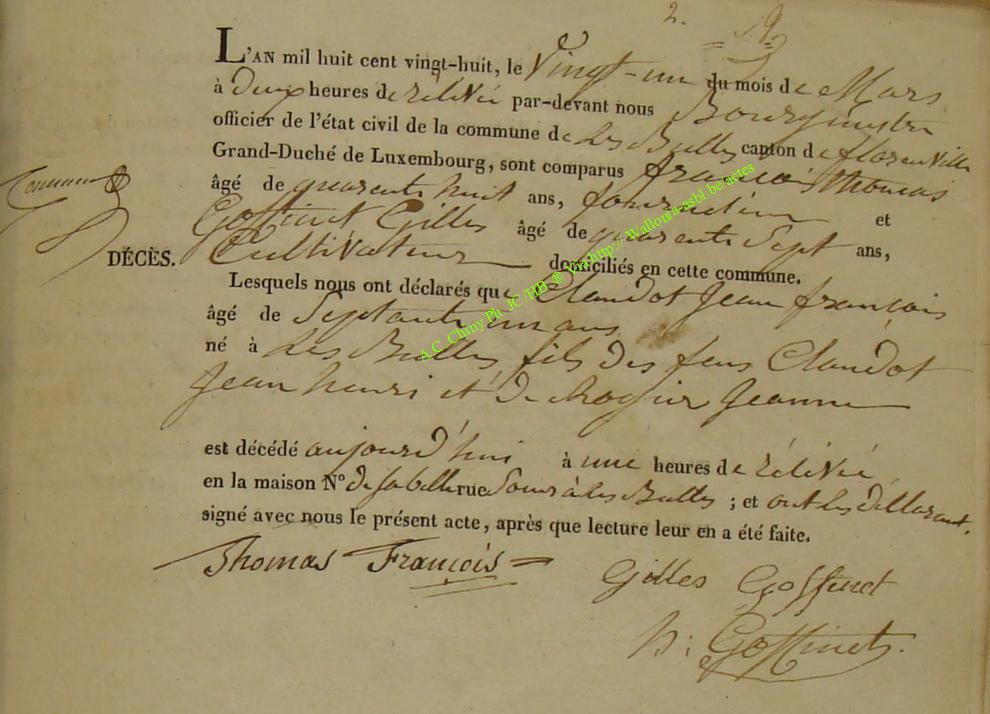 2.
L'AN mil huit cent vingt-huit, le Vingt-un du mois de Mars
à Deux heures de rélévée par-devant nous Bourguestre
officier de l'état civil de la commune de Les Bulles canton de florenville
Grand-Duché de Luxembourg, sont comparus françois thomas
âgé de quarente huit ans, et
Goffinet Gilles âgé de quarente Sept ans,
DÉCÈS. Cultivateur domiciliés en cette commune.
Lesquels nous ont déclarés que Claudot Jean françois
âgé de Septante un ans
né à Les Bulles, fils des feus Claudot
Jean henri et de Jeanne
est décédé aujourd'hui à une heures de rélévée
en la maison N° de sa belle rue Soeur à les Bulles ; et ont les déclarant
signé avec nous le présent acte, après que lecture leur en a été faite.
Thomas François
Gilles Goffinet
h: Goffinet.
A.C. Chiny Ph. JC / HB ® Via http:// Wallonia-asbl.be/actes